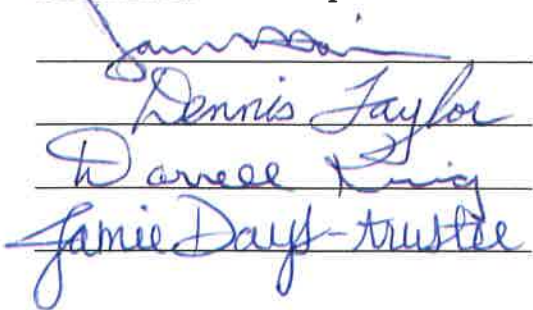 Dennis Taylor
Darrell King
Jamie Days-trustee